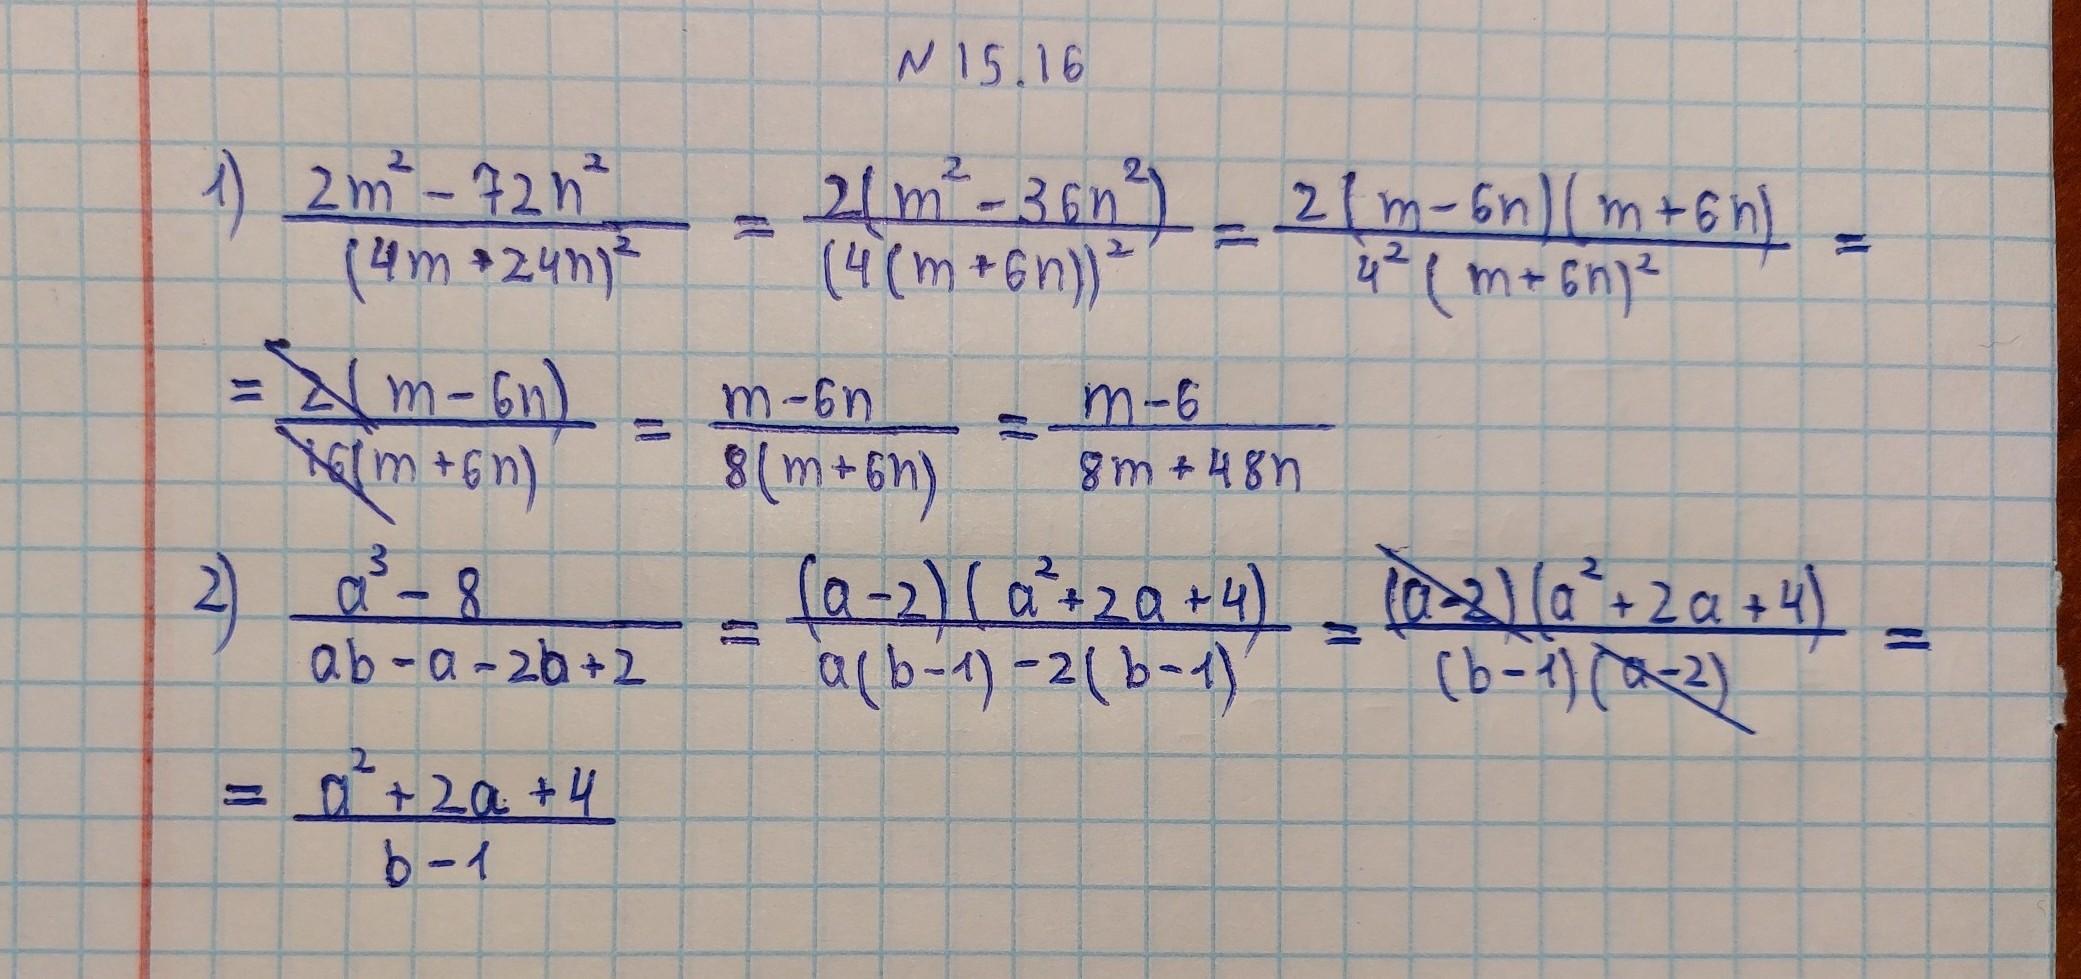 N 15.16
1) (2m² - 72n²)/((4m + 24n)²) = (2(m² - 36n²))/((4(m + 6n))²) = (2(m - 6n)(m + 6n))/(4²(m + 6n)²) =
= (2(m - 6n))/(16(m + 6n)) = (m - 6n)/(8(m + 6n)) = (m - 6)/(8m + 48n)
2) (a³ - 8)/(ab - a - 2b + 2) = ((a - 2)(a² + 2a + 4))/(a(b - 1) - 2(b - 1)) = ((a - 2)(a² + 2a + 4))/((b - 1)(a - 2)) =
= (a² + 2a + 4)/(b - 1)